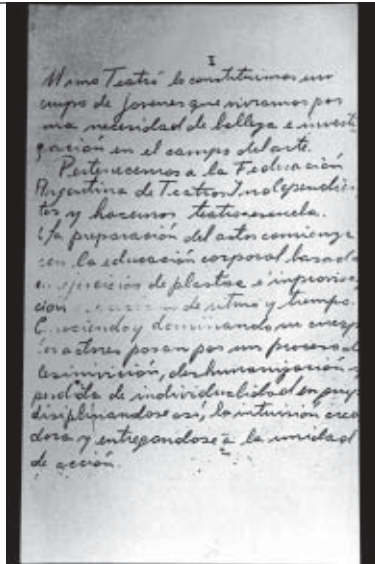 I
Mimo Teatro lo constituimos un
grupo de jovenes que vivimos por
una necesidad de belleza e investi
gación en el campo del arte.
Pertenecemos a la Federación
Argentina de Teatros Independien
tes y hacemos teatro escuela.
La preparación del actor comienza
con la educación corporal basada
en ejercicios de plastica e improvisa
cion de ritmo y tiempo.
Conociendo y dominando su cuerpo
los actores pasan por un proceso de
deshumanización y
perdida de individualidad en grupo
disiplinandose asi, la intuision crea
dora y entregandose a la unidad
de acción.